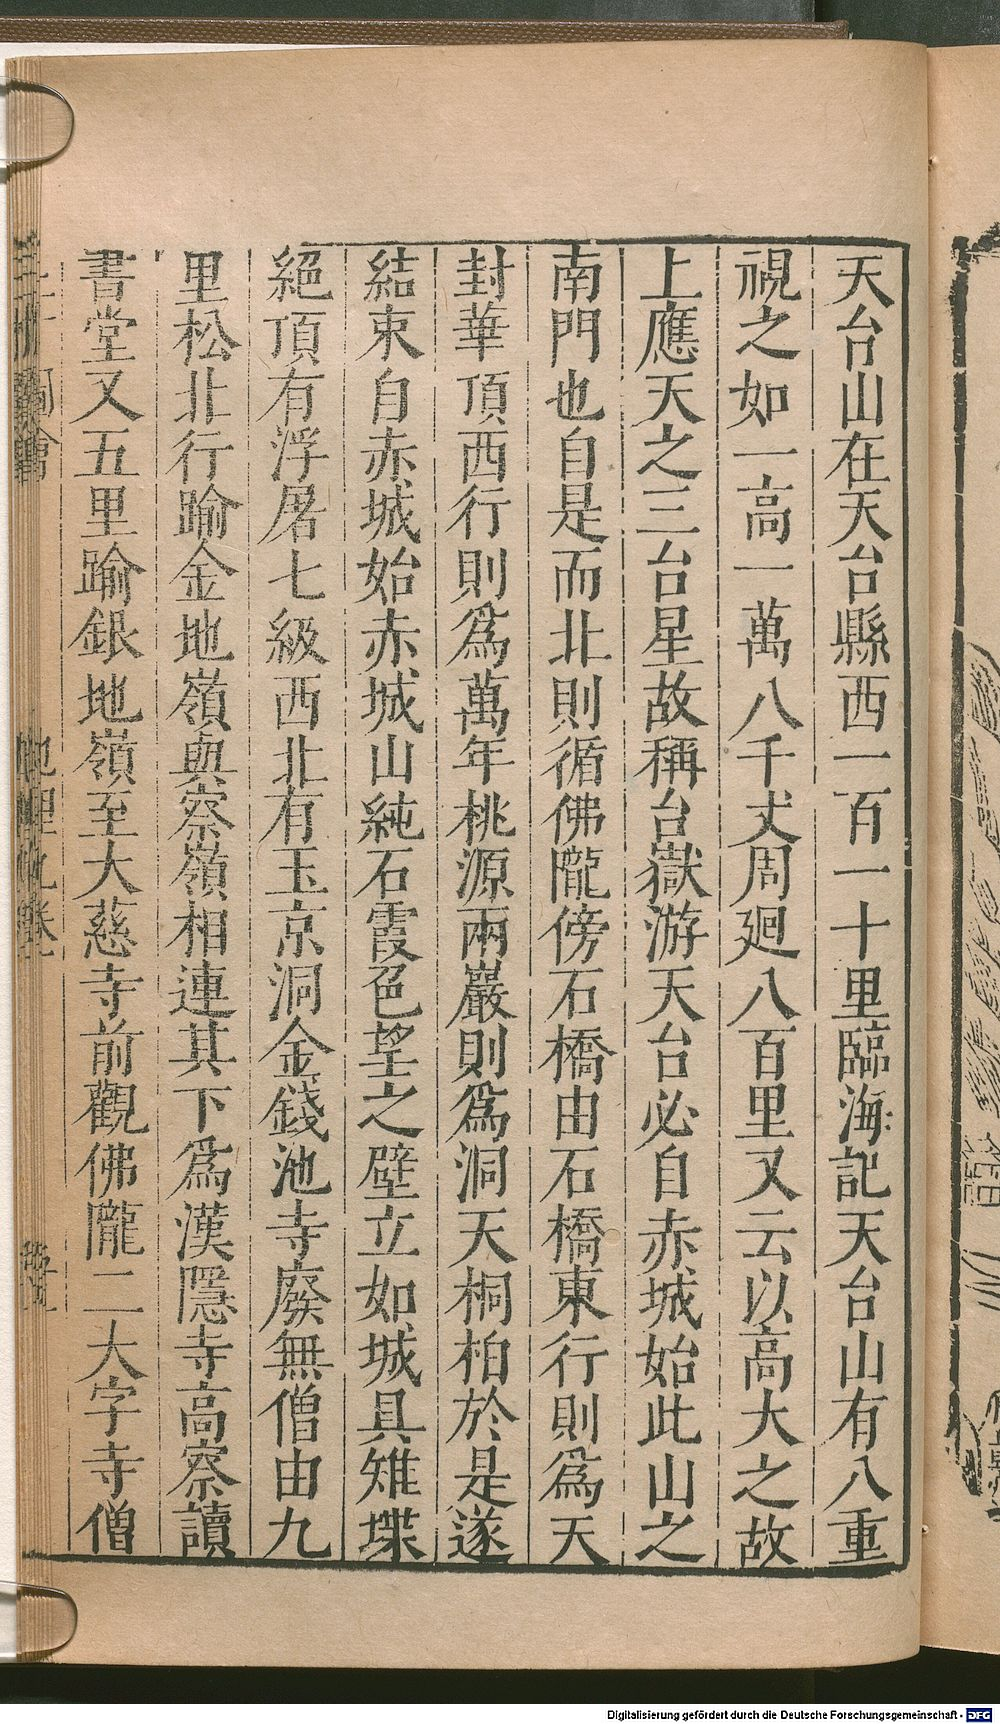 天台山在天台縣西一百一十里臨海記天台山有八重
視之如一高一萬八千丈周廻八百里又云以高大之故
上應天之三台星故稱台嶽游天台必自赤城始此山之
南門也自是而北則循佛隴傍石橋由石橋東行則爲天
封華頂西行則爲萬年桃源兩巖則爲洞天桐柏於是遂
結束自赤城始赤城山純石霞色望之壁立如城具雉堞
絕頂有浮屠七級西北有玉京洞金錢池寺廢無僧由九
里松北行踰金地嶺與察嶺相連其下爲漢隱寺高察讀
書堂又五里踰銀地嶺至大慈寺前觀佛隴二大字寺僧
Digitalisierung gefördert durch die Deutsche Forschungsgemeinschaft - DFG